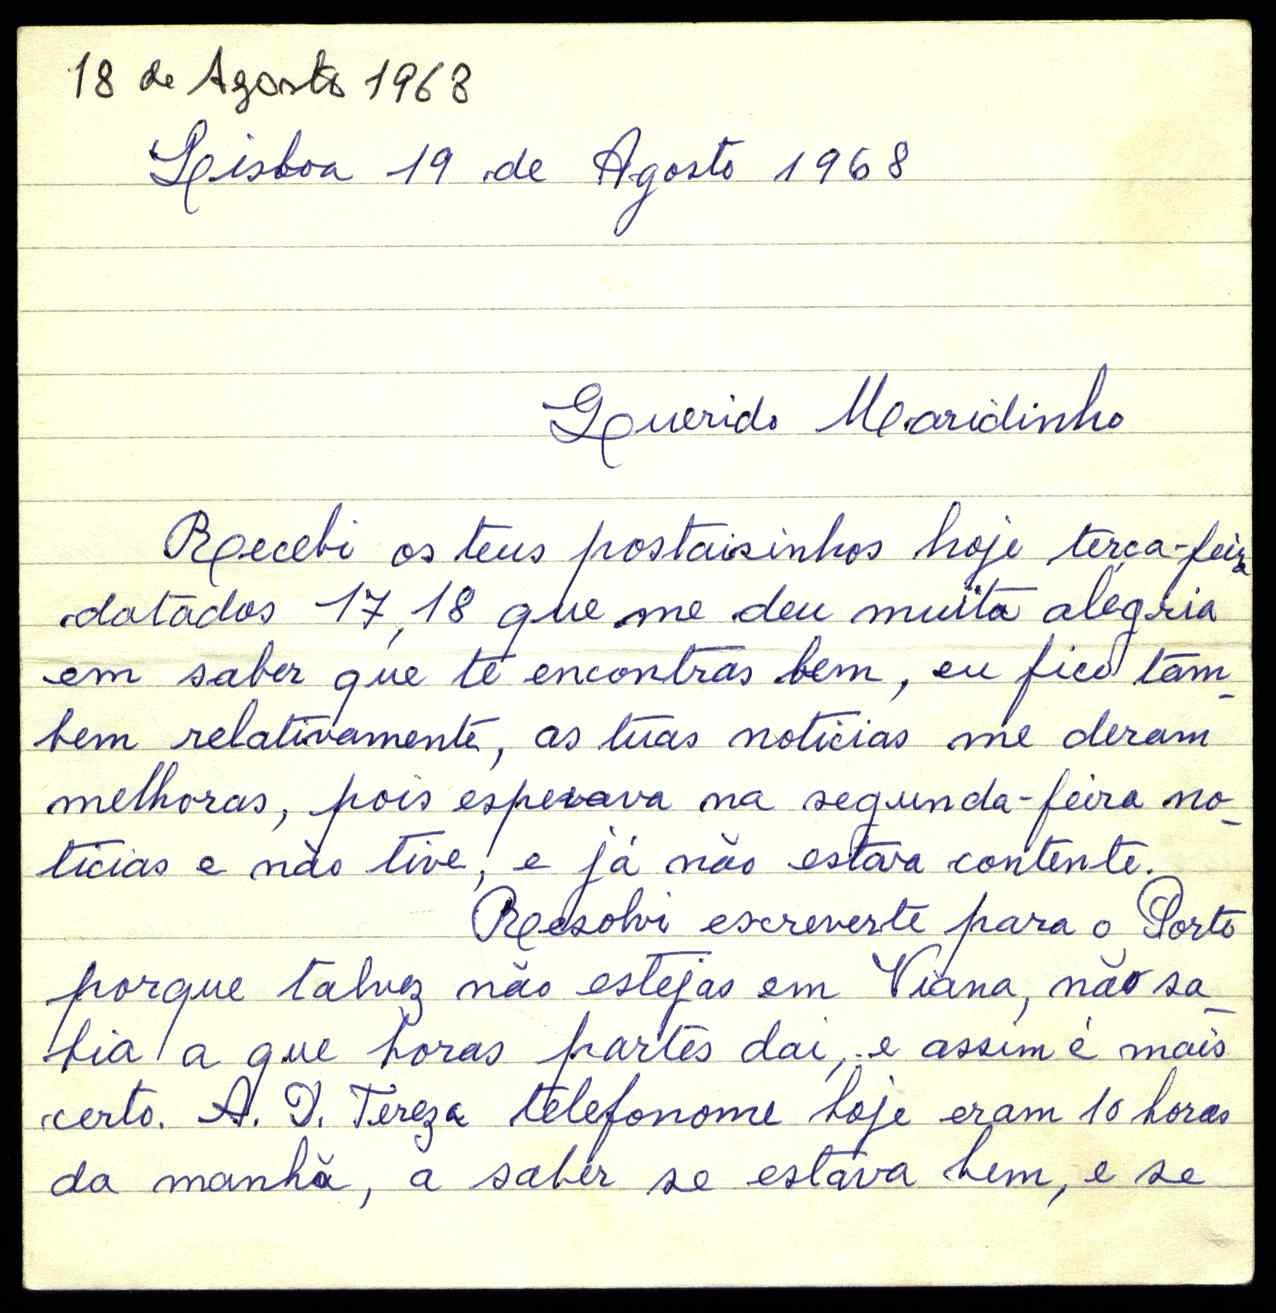 18 de Agosto 1968
Lisboa 19 de Agosto 1968
Querido Maridinho
Recebi os teus postaisinhos hoje terça-feira
datados 17, 18 que me deu muita alegria
em saber que te encontras bem, eu fico tam_
bem relativamente, as tuas noticias me deram
melhoras, pois esperava na segunda-feira no_
ticias e não tive, e já não estava contente.
Resolvi escreverte para o Porto
porque talvez não estejas em Viana, não sa_
bia a que horas partes dai, e assim é mais
certo. A. D. Tereza telefonome hoje eram 10 horas
da manhã, a saber se estava bem, e se